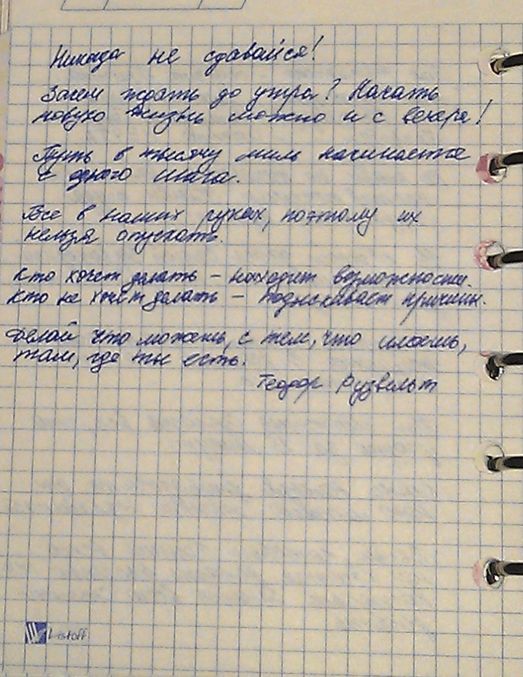 Никогда не сдавайся!
Зачем ждать до утра? Начать
новую жизнь можно и с вечера!
Путь в тысячу миль начинается
с одного шага.
Все в наших руках, поэтому их
нельзя опускать.
Кто хочет делать – находит возможности.
Кто не хочет делать – подыскивает причины.
Делай что можешь, с тем, что имеешь,
там, где ты есть.
Теодор Рузвельт
Listoff